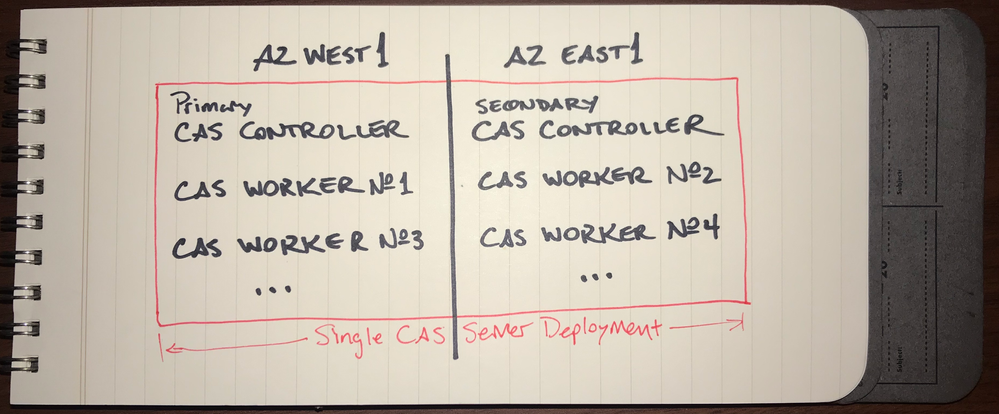 AZ WEST 1
AZ EAST 1
Primary
CAS CONTROLLER
CAS WORKER Nº1
CAS WORKER Nº3
...
SECONDARY
CAS CONTROLLER
CAS WORKER Nº2
CAS WORKER Nº4
...
Single CAS Server Deployment
20
Subject:
20
Subject: